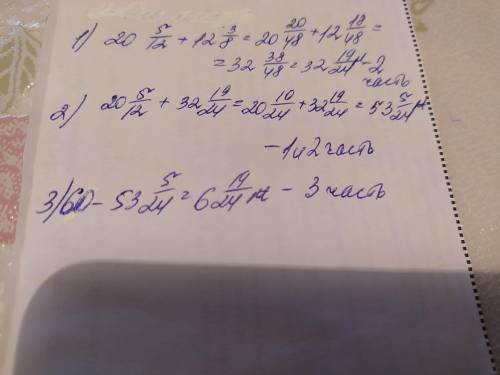 1) 20 5/12 + 12 3/8 = 20 20/48 + 12 18/48 =
= 32 38/48 = 32 19/24 м - 2 часть
2) 20 5/12 + 32 19/24 = 20 10/24 + 32 19/24 = 53 5/24 м
- 1 и 2 часть
3) 60 - 53 5/24 = 6 19/24 м - 3 часть